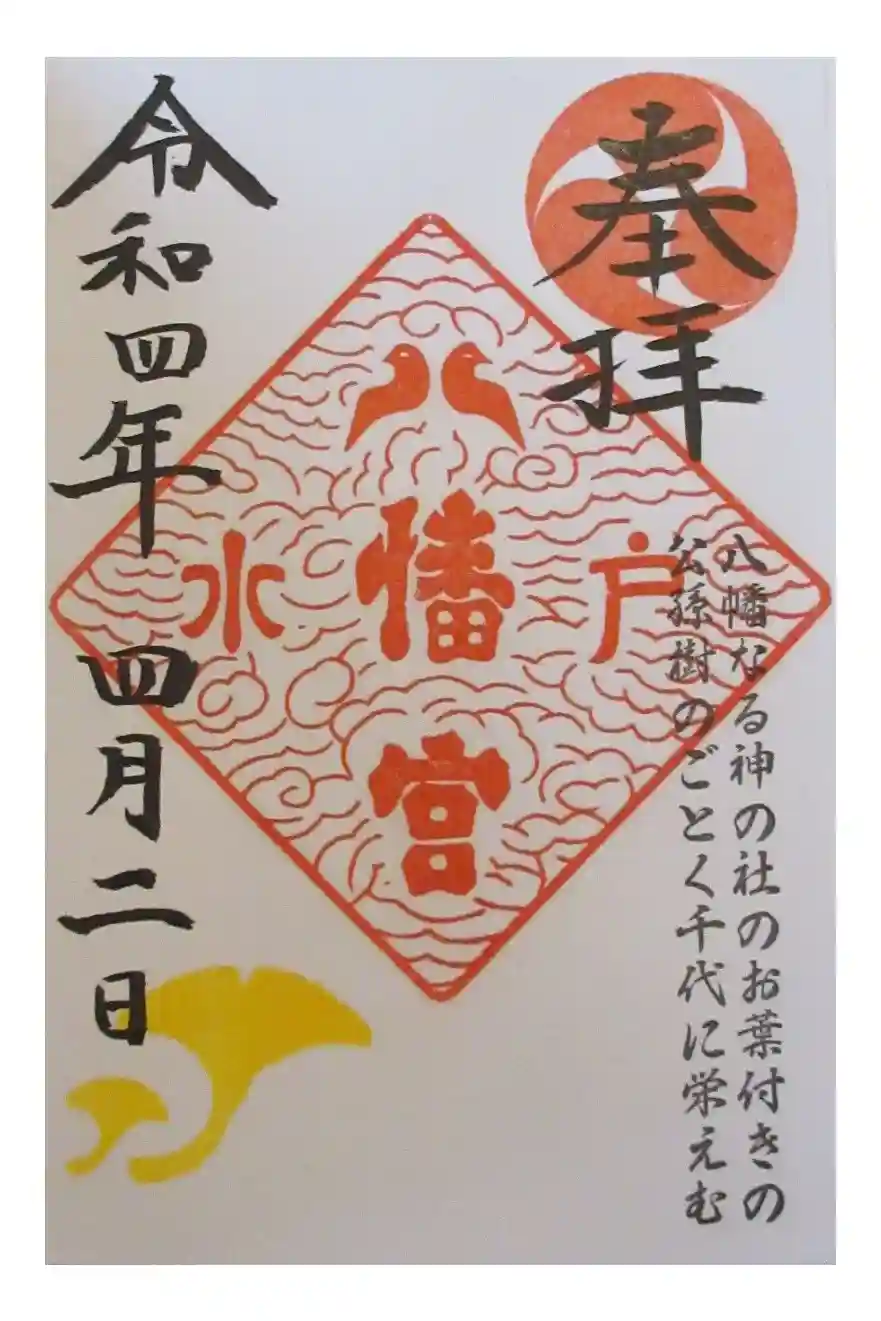 奉拝
八幡なる神の社のお葉付きの
公孫樹のごとく千代に栄えむ
水戸
八幡宮
令和四年四月二日